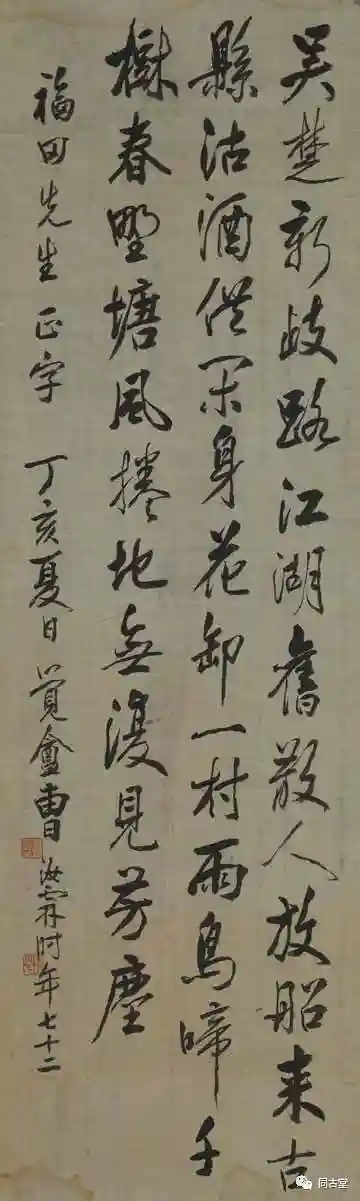 吴楚新歧路江湖舊散人放船来古
縣沽酒供閑身花卸一村雨鳥啼千
樹春野塘風捲地無復見芳塵
福田先生正字 丁亥夏日覺盦曹汝霖时年七十二
同古堂